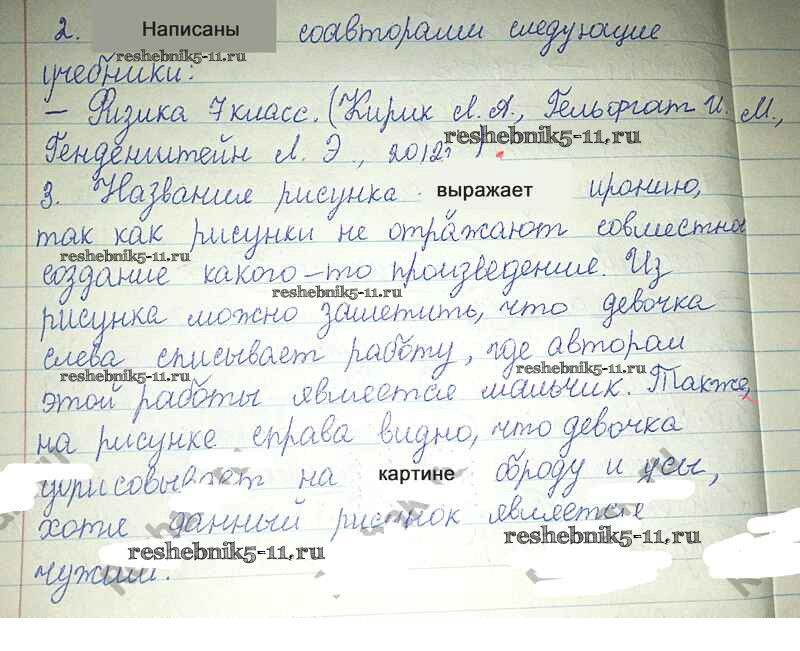 2. Написаны соавторами следующие
reshebnik5-11.ru
учебники:
– Физика 7 класс. (Кирик Л. А., Гельфгат И. М.,
reshebnik5-11.ru
Генденштейн Л. Э., 2012г.).
3. Название рисунка выражает иронию,
так как рисунки не отражают совместное
reshebnik5-11.ru
создание какого-то произведение. Из
reshebnik5-11.ru
рисунка можно заметить, что девочка
слева списывает работу, где автором
reshebnik5-11.ru reshebnik5-11.ru
этой работы является мальчик. Также,
на рисунке справа видно, что девочка
дорисовывает на картине броду и усы,
хотя данный рисунок является
reshebnik5-11.ru reshebnik5-11.ru
чужим.